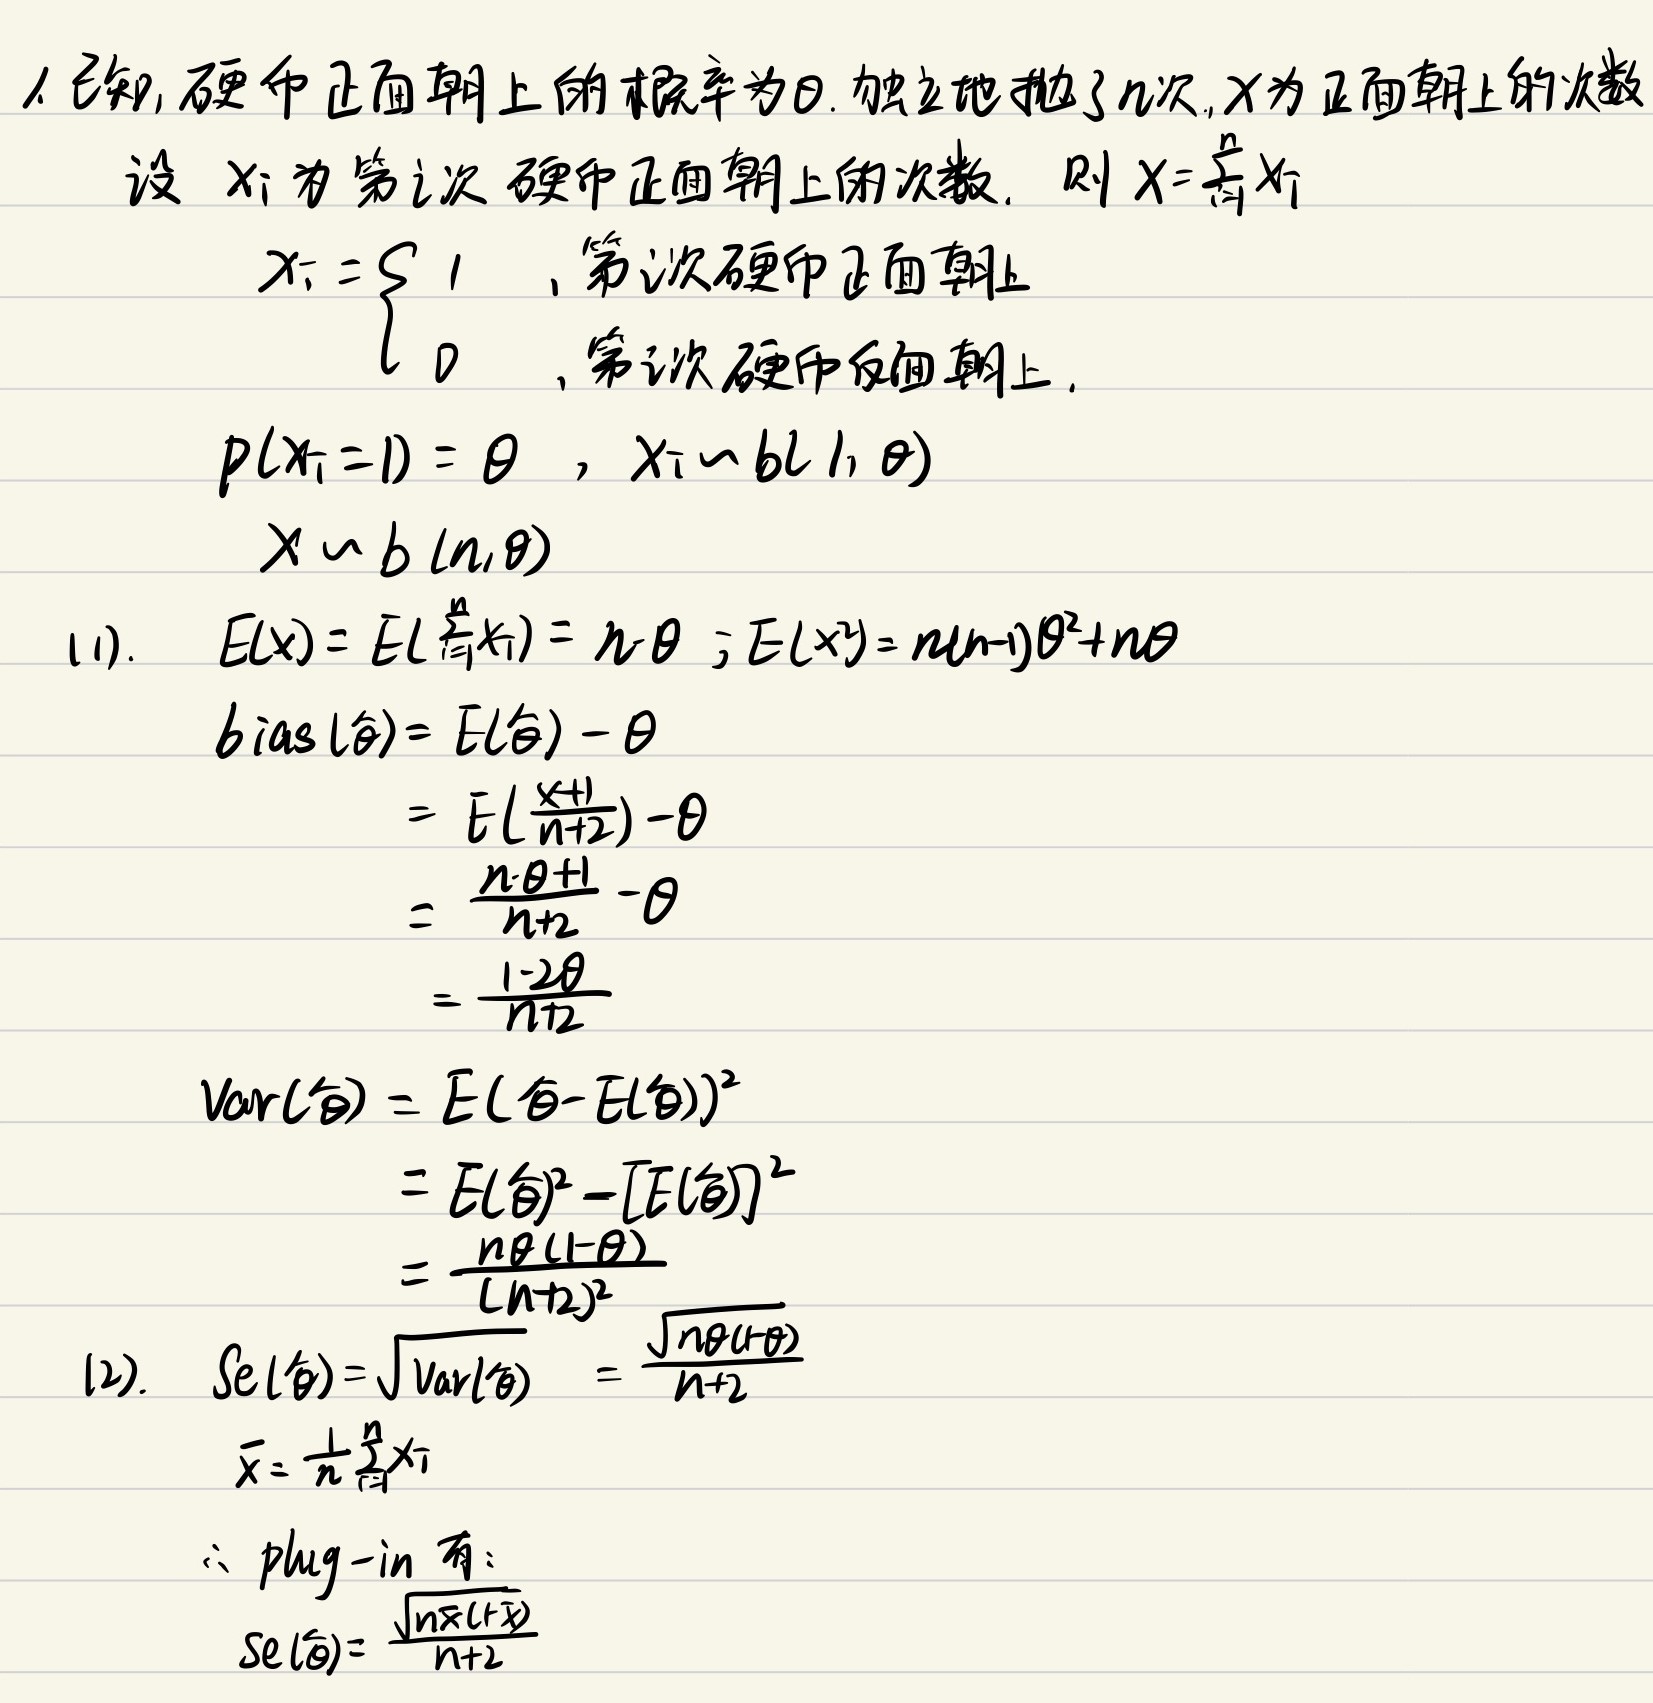 1. 已知, 硬币正面朝上的概率为θ. 独立地抛了n次, X为正面朝上的次数
设 Xi 为第i次硬币正面朝上的次数. 则 X=∑_{i=1}^{n} Xi
Xi = { 1 , 第i次硬币正面朝上
0 , 第i次硬币反面朝上.
P(Xi=1) = θ , Xi ~ b(1, θ)
X ~ b(n, θ)
(1). E(X) = E(∑_{i=1}^{n} Xi) = n·θ ; E(X²) = n(n-1)θ²+nθ
bias(θ̂) = E(θ̂) - θ
= E(\frac{X+1}{n+2}) - θ
= \frac{n·θ+1}{n+2} - θ
= \frac{1-2θ}{n+2}
Var(θ̂) = E(θ̂-E(θ̂))²
= E(θ̂)² - [E(θ̂)]²
= \frac{nθ(1-θ)}{(n+2)²}
(2). Se(θ̂) = \sqrt{Var(θ̂)} = \frac{\sqrt{nθ(1-θ)}}{n+2}
x̄ = \frac{1}{n} ∑_{i=1}^{n} Xi
∴ plug-in 有:
Se(θ̂) = \frac{\sqrt{nx̄(1-x̄)}}{n+2}